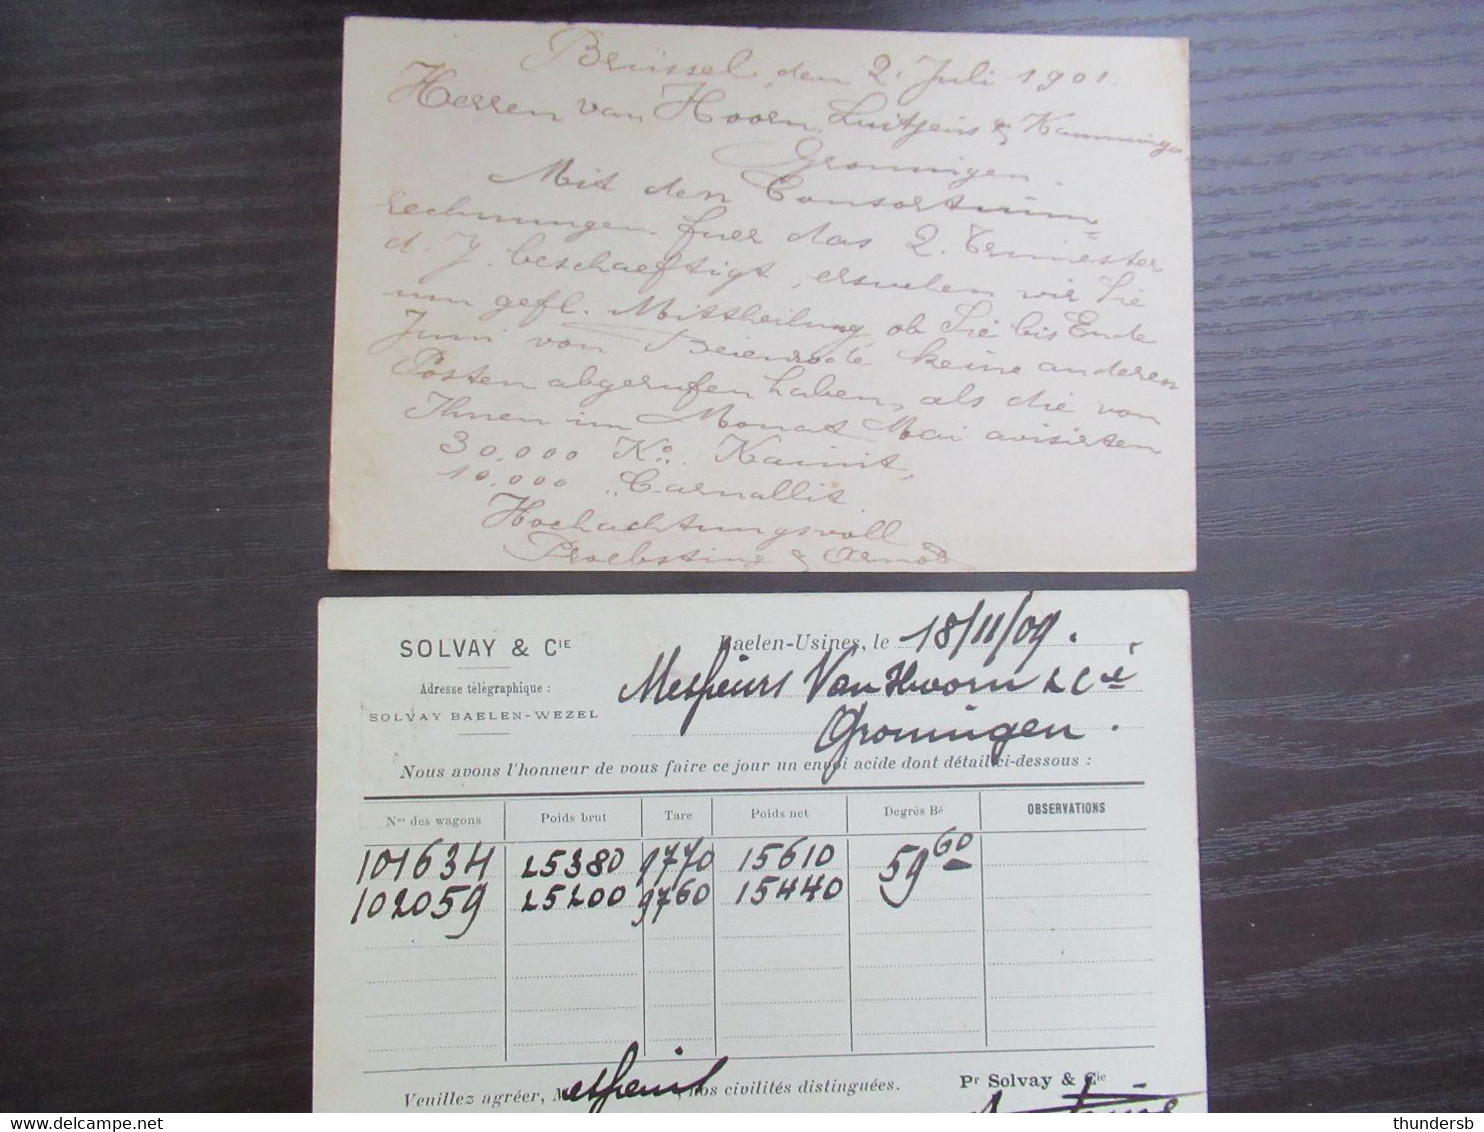 Brüssel, den 2. Juli 1901.
Herren van Hoorn, Luitjens & Kamminga
Groningen.
Mit den Consortium=
rechnungen fuer das 2. Trimester
d. J. beschaeftigt, ersuchen wir Sie
um gefl. Mittheilung ob Sie bis Ende
Juni von Beienrode keine anderen
Posten abgerufen haben, als die von
Ihnen im Monat Mai avisirten
30,000 Ko. Kainit,
10,000 " Carnallit
Hochachtungsvoll
Proebsting &
SOLVAY & CIE
Baelen-Usines, le 18/11/09.
Adresse télégraphique :
Messieurs Van Hoorn & Cie
SOLVAY BAELEN-WEZEL
Groningen.
Nous avons l'honneur de vous faire ce jour un envoi acide dont détail ci-dessous :
Nos des wagons Poids brut Tare Poids net Degrés Bé OBSERVATIONS
101634 25380 9770 15610 59 60
102059 25200 9760 15440
Pr Solvay & Cie
Veuillez agréer, Messieurs, nos civilités distinguées.
thundersb
www.delcampe.net